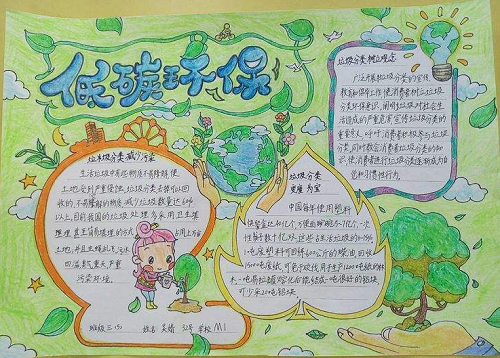 低碳环保
垃圾分类,树立观念
广泛开展垃圾分类的宣传、
教育和倡导工作,使消费者树立垃圾
分类环保意识,阐明垃圾对社会生
活造成的严重危害,宣传垃圾分类的
重要意义,呼吁消费者积极参与垃圾分
类。同时教会消费者垃圾分类的知
识,使消费者进行垃圾分类逐渐成为自
觉和习惯性行为。
垃圾分类,减少污染
生活垃圾中有些物质不易降解,使
土地受到严重侵蚀。垃圾分类去掉可以回
收的、不易降解的物质,减少垃圾数量达60%
以上,目前我国的垃圾处理多采用卫生填
埋甚至简易填埋的方式,占用上万亩
土地;并且虫蝇乱飞,污水
四溢,臭气熏天,严重
污染环境。
垃圾分类
变废为宝
中国每年使用塑料
快餐盒达40亿个,方便面碗5-7亿个,一次
性筷子数十亿个,这些占生活垃圾的8-15%。
1吨废塑料可回炼600公斤的柴油。回收
1500吨废纸,可免于砍伐用于生产1200吨纸的林
木。一吨易拉罐熔化后能结成一吨很好的铝块,
可少采20吨铝矿。
班级三(5) 姓名 吴婧 32号 学校 M1